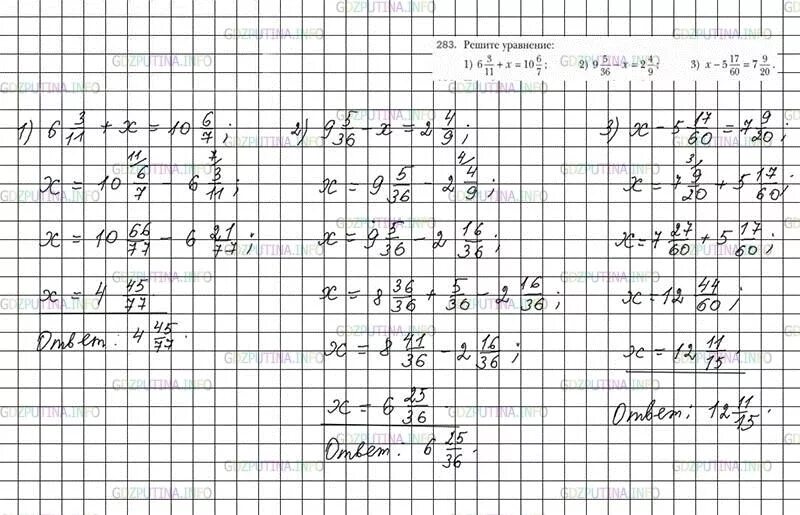 GDZPUTINA.INFO
283. Решите уравнение:
1) 6 3/11 + x = 10 6/7; 2) 9 5/36 − x = 2 4/9; 3) x − 5 17/60 = 7 9/20.
1) 6 3/11 + x = 10 6/7;
x = 10 6/7 (11/) − 6 3/11 (7/);
x = 10 66/77 − 6 21/77;
x = 4 45/77
Ответ: 4 45/77.
2) 9 5/36 − x = 2 4/9;
x = 9 5/36 − 2 4/9 (4/);
x = 9 5/36 − 2 16/36;
x = 8 36/36 + 5/36 − 2 16/36;
x = 8 41/36 − 2 16/36;
x = 6 25/36
Ответ: 6 25/36.
3) x − 5 17/60 = 7 9/20;
x = 7 9/20 (3/) + 5 17/60;
x = 7 27/60 + 5 17/60;
x = 12 44/60;
x = 12 11/15
Ответ: 12 11/15.